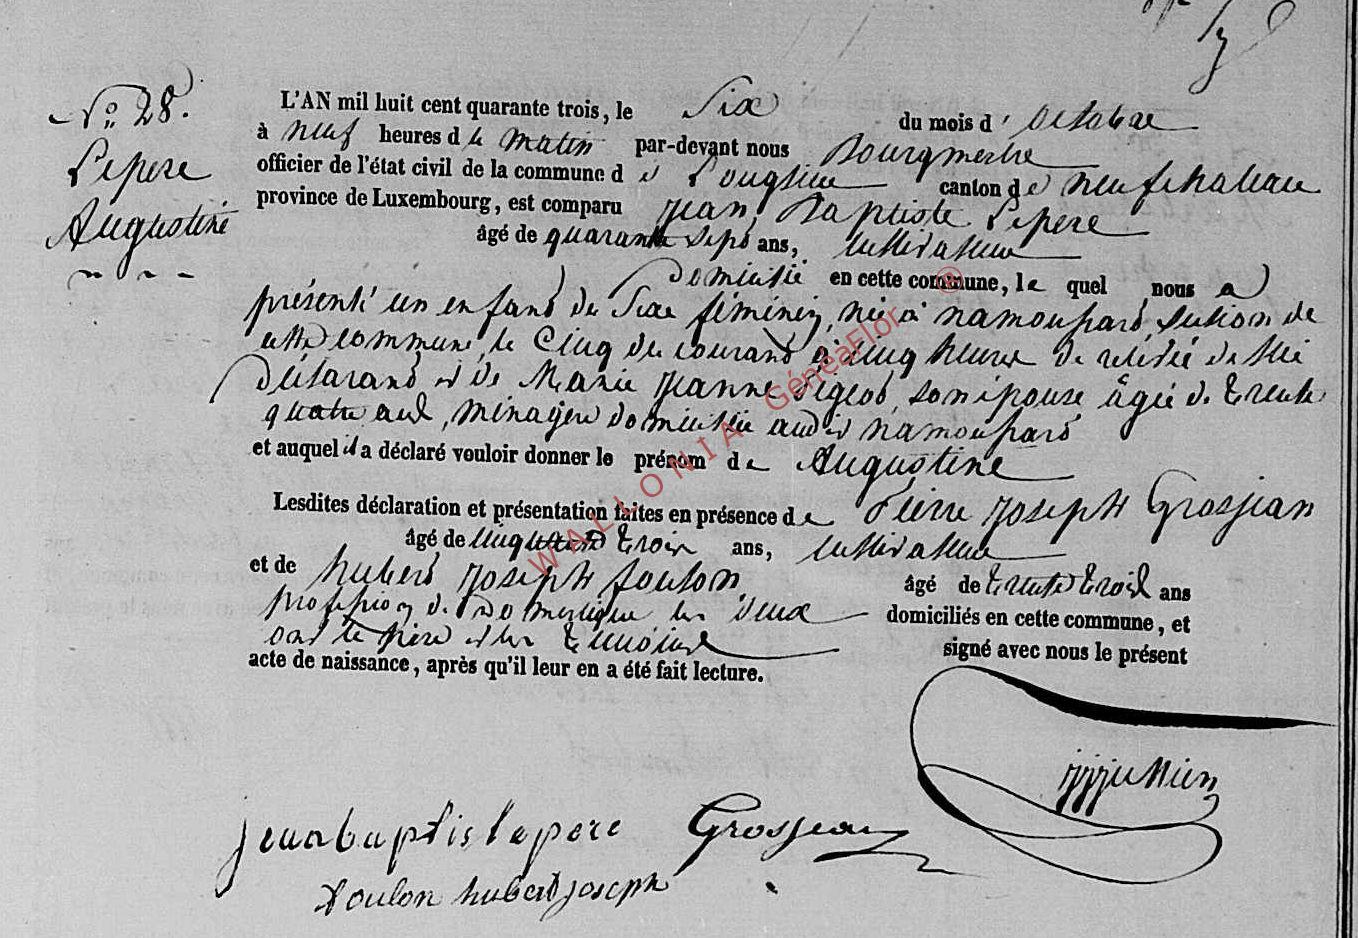 No 28.
Lepere
Augustine
L'AN mil huit cent quarante trois, le Six du mois d' octobre
à neuf heures du matin par-devant nous Bourgmestre
officier de l'état civil de la commune de Longlier canton de neufchateau
province de Luxembourg, est comparu Jean Baptiste Lepere
âgé de quarante sept ans, cultivateur
domicilié en cette commune, le quel nous a
présenté un enfant du Sexe féminin, née à namoussart section de
cette commune, le Cinq du courant à cinq heures de relevée de lui
déclarant et de Marie Jeanne son épouse, âgée de trente
quatre ans, ménagere domiciliée audit namoussart
et auquel il a déclaré vouloir donner le prénom de Augustine
Lesdites déclaration et présentation faites en présence de Pierre Joseph Grosjean
âgé de trois ans, cultivateur
et de hubert Joseph foulon âgé de trente trois ans
profession de domestique les deux domiciliés en cette commune, et
ont le père et les témoins signé avec nous le présent
acte de naissance, après qu'il leur en a été fait lecture.
jjjullien
jean baptis lepere Grosjean
foulon hubert joseph
WALLONIA GénéaFlor ®